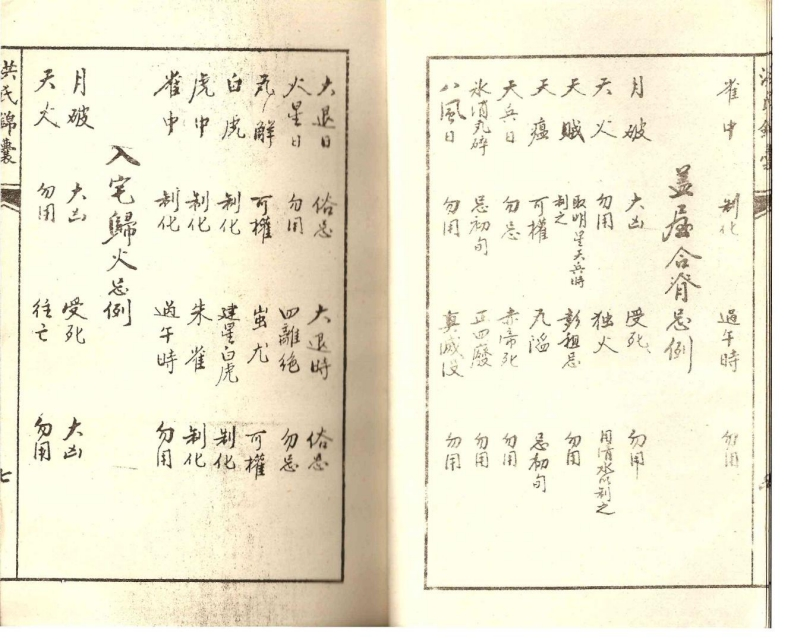 雀中 制化 過午時 勿用
蓋屋合脊忌例
月破 大凶 受死 勿用
天火 勿用 独火 用清水以制之
天賊 取明星天兵時制之 彭祖忌 勿用
天瘟 可權 瓦滔 忌初旬
天兵日 勿忌 赤帝死 勿用
氷消瓦碎 忌初旬 正四廢 勿用
八風日 勿用 真滅没 勿用
大退日 俗忌 大退時 俗忌
火星日 勿用 四離絶 勿忌
瓦解 可權 蚩尤 可權
白虎 制化 建星白虎 制化
虎中 制化 朱雀 制化
雀中 制化 過午時 勿用
入宅歸火忌例
月破 大凶 受死 大凶
天火 勿用 往亡 勿用
洪氏錦囊
七